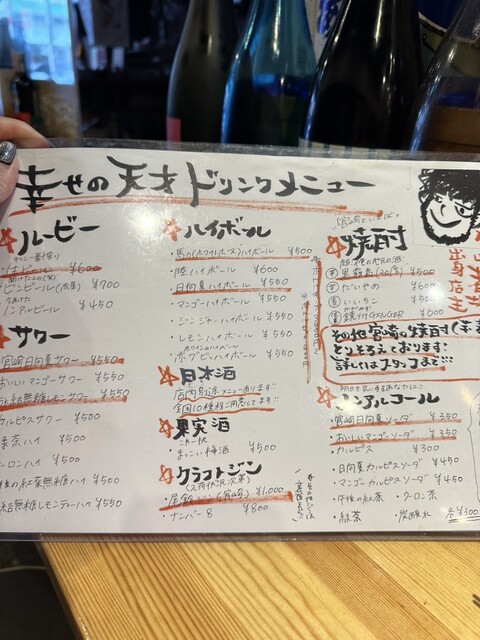 幸せの天才 ドリンクメニュー
ルービー
¥600
¥700
ノンアルビール ¥450
サワー
宮崎日向夏サワー ¥550
おいしいマンゴーサワー ¥550
氷結無糖レモンサワー ¥550
カルピスサワー ¥500
緑茶ハイ ¥500
ウーロンハイ ¥500
午後の紅茶無糖ハイ ¥500
氷結無糖レモンティーハイ ¥550
ハイボール
・馬(ホワイトホース)ハイボール ¥500
・陸ハイボール ¥600
・日向夏ハイボール ¥550
・マンゴーハイボール ¥550
・ジンジャーハイボール ¥550
・レモンハイボール ¥550
・ホワインハイボール ¥550
日本酒
店内別途メニューあります!!
全国10種程ご用意してます!!
果実酒
・まっこい梅酒 ¥500
クラフトジン
(入荷状況次第)
・尾鈴ジン(宮崎) ¥1,000
・ナンバー8 ¥800
"宮崎といえば"
焼酎
黒霧島(20度) ¥500
だいやめ ¥600
いいちこ ¥500
GINGER ¥600
その他宮崎の焼酎(芋・麦)
とりそろえております
詳しくはスタッフまで!!
出身店主
ノンアルコール
・宮崎日向夏ソーダ ¥350
・おいしいマンゴーソーダ ¥350
・カルピス ¥300
・日向夏カルピスソーダ ¥450
・マンゴーカルピスソーダ ¥450
・午後の紅茶 ・ウーロン茶
・緑茶 ・炭酸水 各¥300